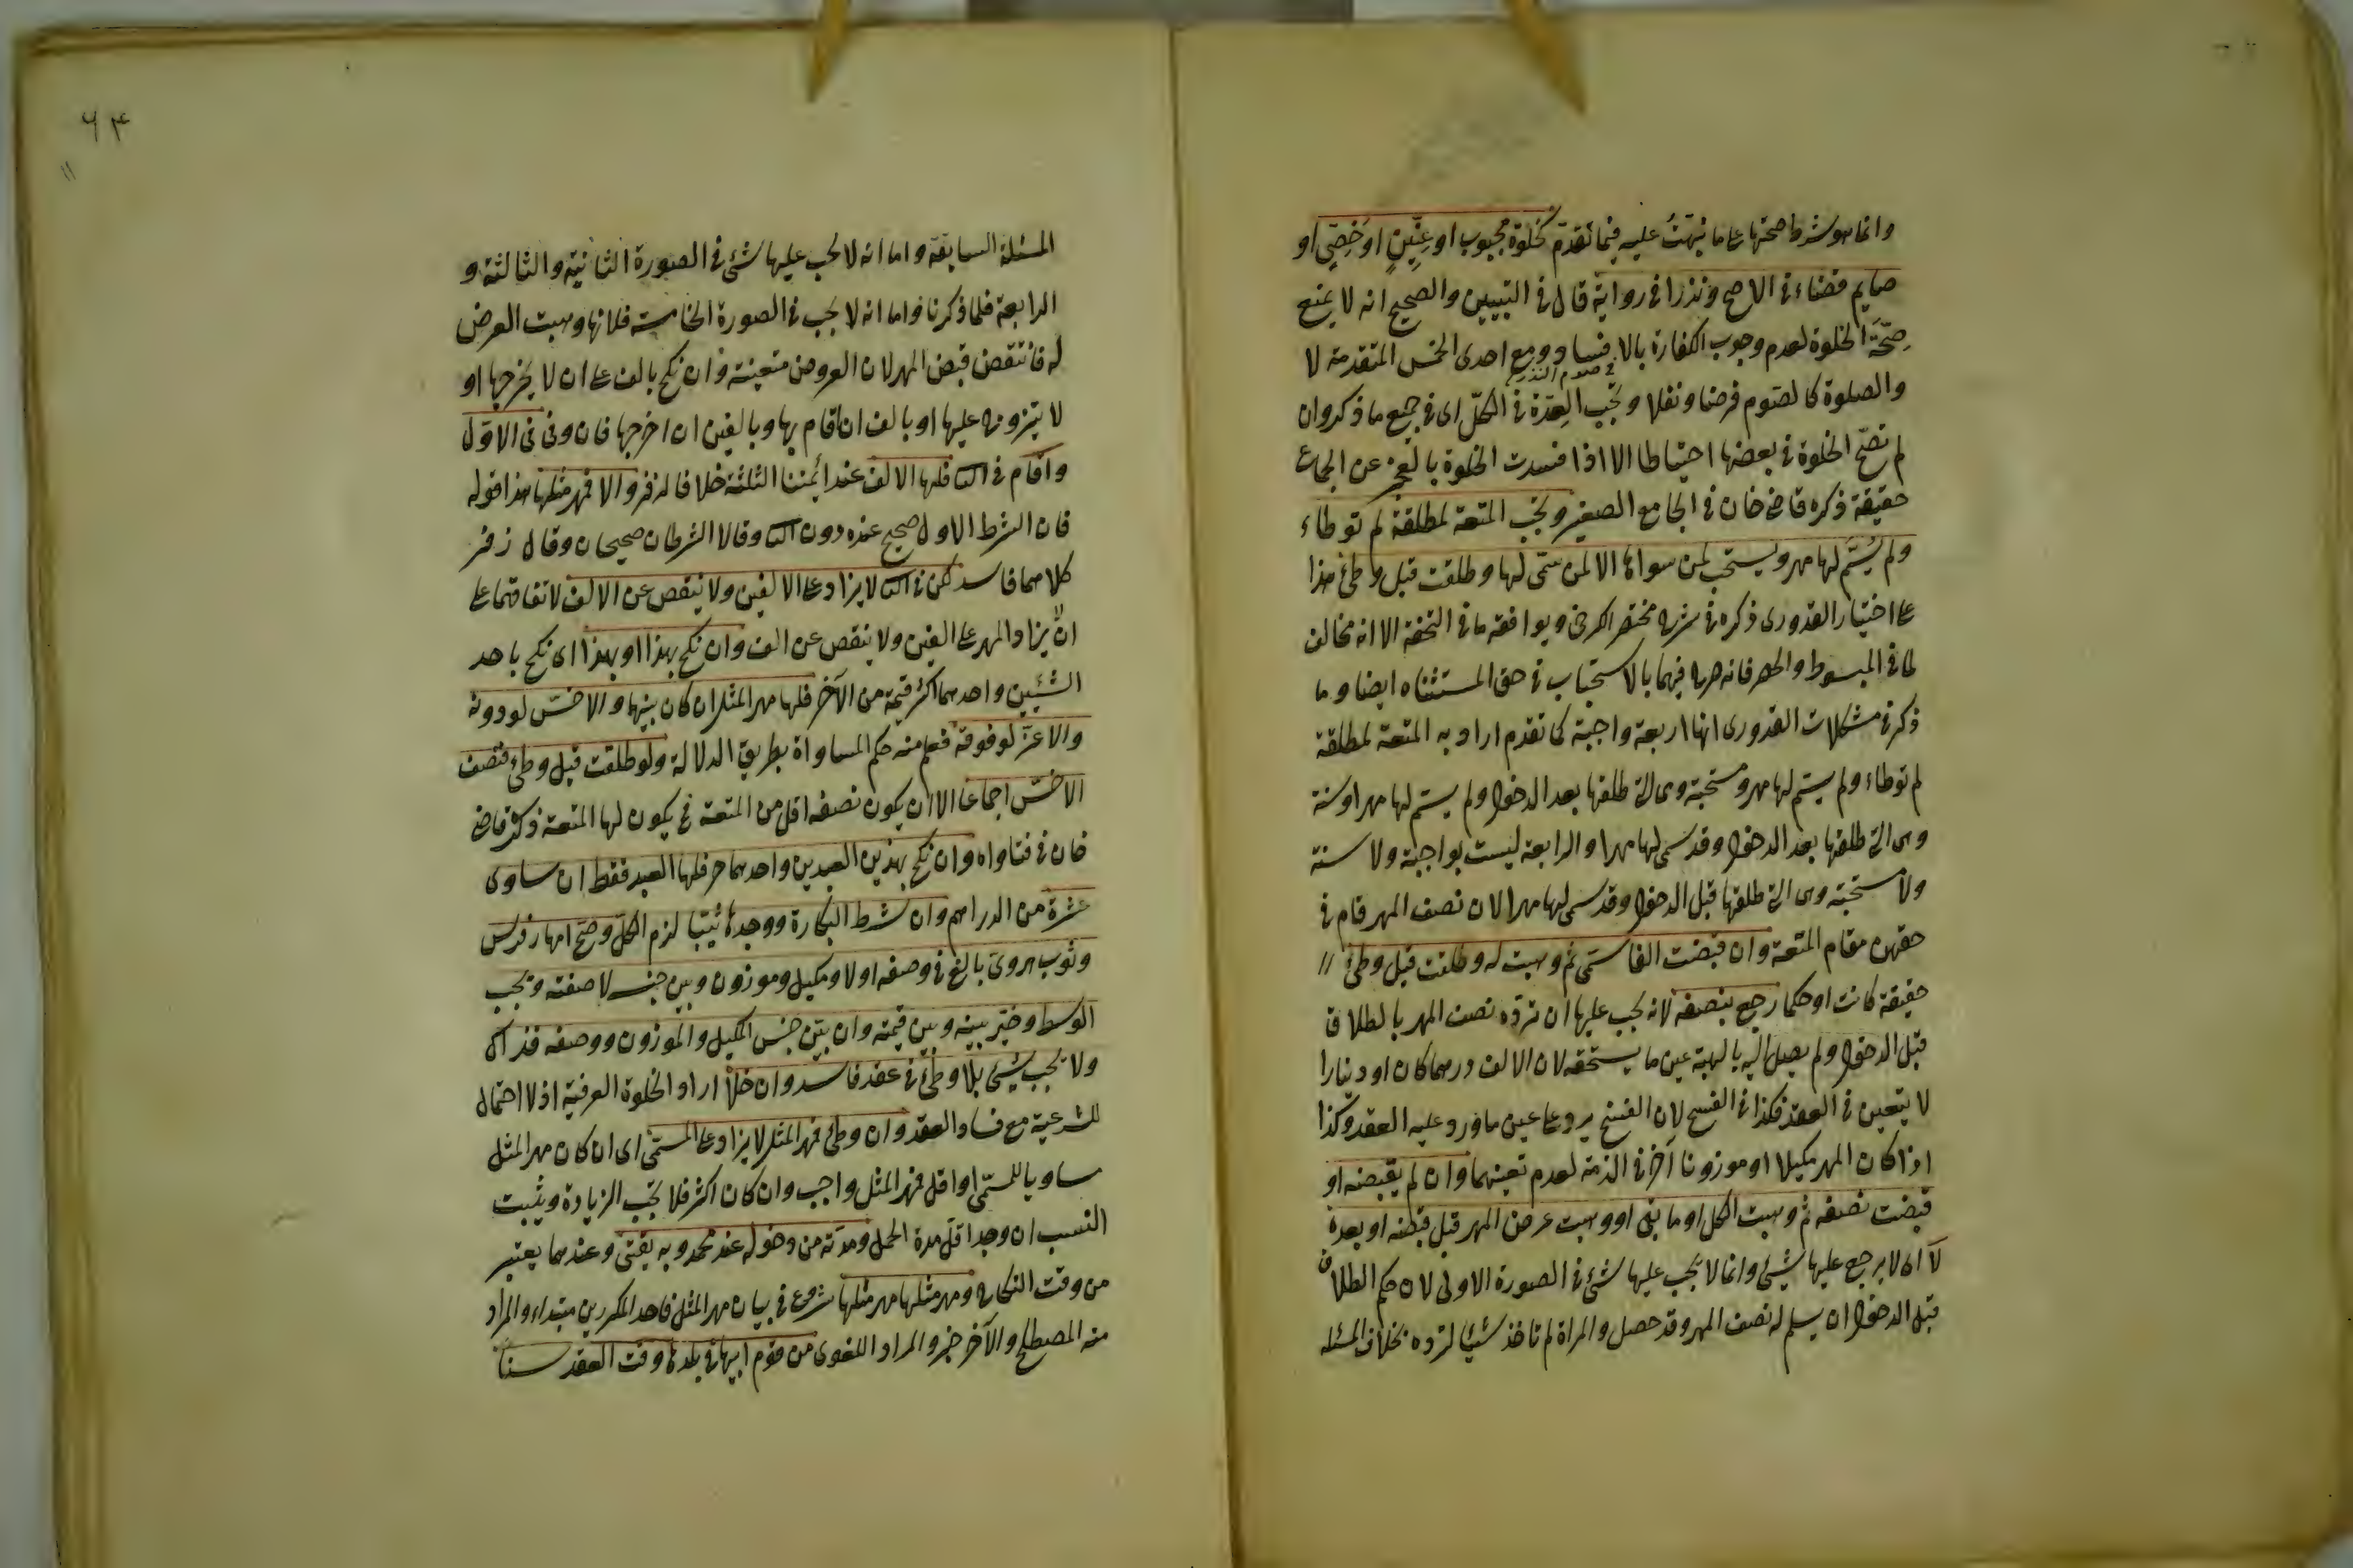 وانما هو شرط صحتها على ما نبّهتُ عليه فيما تقدّم كخلوة مجبوب او عِنّينٍ او خَصِيٍّ او
صايم قضاء في الاصح ونذرا في رواية قال في التبيين والصحيح انه لا يمنع
صِحّةَ الخلوة لعدم وجوب الكفارة بالافساد ومع احدى الخمس المتقدمة لا
في صوم النذر
والصلوة كالصّوم فرضا ونفلا وتجب العِدّة في الكلّ اى في جميع ما ذكر وان
لم تصّح الخلوة في بعضها احتياطا الا اذا فسدت الخلوة بالعجز عن الجماع
حقيقة ذكره قاضى خان في الجامع الصغير وتجب المتعة لمطلقة لم توطاء
ولم يُسَمّ لها مهر ويستحب لمن سواها الا لمن سمّى لها وطلقت قبل وطئ هذا
على اختيار القدورى ذكره في شرح مختصر الكرخى ويوافقه ما في التحفة الا انه مخالف
لما في المبسوط والحصر فانه صرح فيهما بالاستحباب في حق المستثناه ايضا وما
ذكر في مشكلات القدورى انها اربعة واجبة كما تقدم اراد به المتعة لمطلقة
لم توطاء ولم يسمّ لها مهر ومستحبة وهى التى طلقها بعد الدخول ولم يسمّ لها مهرا وسنة
وهى التى طلقها بعد الدخول وقد سمى لها مهرا والرابعة ليست بواجبة ولا سنة
ولا مستحبة وهى التى طلقها قبل الدخول وقد سمى لها مهرا لان نصف المهر قام في
حقهن مقام المتعة وان قبضت الفا سُمّى ثم وهبت له وطلقت قبل وطئ
حقيقة كانت او حكما رجع بنصفه لانه يجب عليها ان تردّه نصف المهر بالطلاق
قبل الدخول ولم يصل اليه بالهبة عين ما يستحقه لان الالف درهما كان او دينارا
لا يتعين في العقد فكذا في الفسخ لان الفسخ يرد على عين ما ورد عليه العقد وكذا
اذا كان المهر مكيلا او موزونا آخر في الذمة لعدم تعينهما وان لم يقبضه او
قبضت نصفه ثم وهبت الكل او ما بقى او وهبت عرض المهر قبل قبضه او بعده
لا اى لا يرجع عليها بشئ وانما لا يجب عليها شئ في الصورة الاولى لان حكم الطلاق
قبل الدخول ان يسلم له نصف المهر وقد حصل والمراة لم تاخذ شيئا لترده بخلاف المسئله
۶۴
المسئلة السابقة واما انه لا يجب عليها شئ في الصورة الثانية والثالثة و
الرابعة فلما ذكرنا واما انه لا يجب في الصورة الخامسة فلانها وهبت العرض
له فانتقض قبض المهر لان العروض متعينة وان نكح بالف على ان لا يخرجها او
لا يتزوج عليها او بالف ان اقام بها وبالفين ان اخرجها فان وفى في الاوّل
واقام في الثا فلها الالف عند ائمتنا الثلثة خلافا لزفر والا فمهر مثلها هذا قوله
فان الشرط الاول صحيح عنده دون الثا وقالا الشرطان صحيحان وقال زفر
كلاهما فاسد لكن في الثا لا يزاد على الالفين ولا ينقص عن الالف لاتفاقهما على
ان لا يزاد المهر على الفين ولا ينقص عن الف وان نكح بهذا او بهذا اى نكح باحد
الشيئين واحدهما اكثر قيمة من الآخر فلها مهر المثل ان كان بينهما والاخسّ لو دونه
والاعزّ لو فوقه فعلم منه حكم المساواة بطريق الدلالة ولو طلقت قبل وطئ فنصف
الاخسّ اجماعا الا ان يكون نصفه اقل من المتعة فح يكون لها المتعة ذكره قاضى
خان في فتاواه وان نكح بهذين العبدين واحدهما حر فلها العبد فقط ان ساوى
عشرة من الدراهم وان شرط البكارة ووجدها ثيّبا لزم الكلّ وصّح امهار فرس
وثوب هروى بالغ في وصفه او لا ومكيل وموزون وبين جنسه لا صفته وتجب
الوسط وخيّر بينه وبين قيمته وان بيّن جنس المكيل والموزون ووصفه فذاك
ولا يجب شئ بلا وطئ في عقد فاسد وان خلا اراد الخلوة العرفية اذ لا احتمال
للشرعية مع فساد العقد وان وطئ فمهر المثل لا يزاد على المسمّى اى ان كان مهر المثل
مساويا للمسمّى او اقل فمهر المثل واجب وان كان اكثر فلا تجب الزيادة ويثبت
النسب ان وجد اقل مدة الحمل ومدّته من دخوله عند محمد وبه يفتى وعندهما يعتبر
من وقت النكاح ومهر مثلها مهر مثلها شروع في بيان مهر المثل فاحد المكررين مبتداء والمراد
منه المصطلح والآخر خبر والمراد اللغوى من قوم ابيها في بلدها وقت العقد سنا